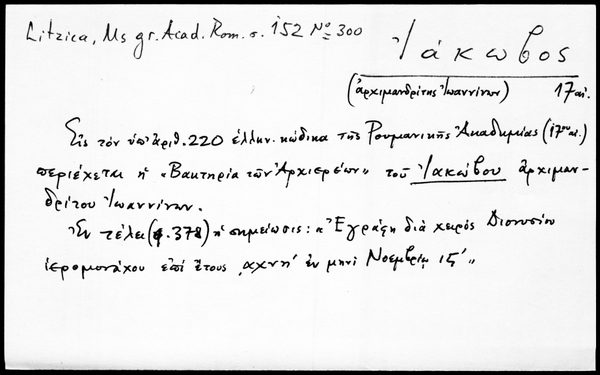 Litzica, Ms gr. Acad. Rom. σ. 152 Nº 300
Ἰάκωβος
(ἀρχιμανδρίτης Ἰωαννίνων) 17 αἰ.
Εἰς τὸν ὑπ' ἀριθ. 220 ἑλλην. κώδικα τῆς Ρουμανικῆς Ἀκαδημίας (17ου αἰ.)
περιέχεται ἡ «Βακτηρία τῶν Ἀρχιερέων» τοῦ Ἰακώβου ἀρχιμαν-
δρίτου Ἰωαννίνων.
Ἐν τέλει (φ. 378) ἡ σημείωσις: «Ἐγράφη διὰ χειρὸς Διονυσίου
ἱερομονάχου ἐπὶ ἔτους ͵αχνη' ἐν μηνὶ Νοεμβρίῳ ις'»